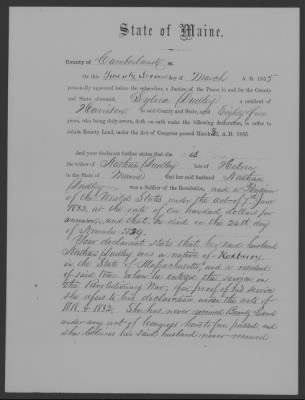 State of Maine.
County of Cumberland, ss.
On this Twenty Second day of March A. D. 1855
personally appeared before the subscriber, a Justice of the Peace in and for the County
and State aforesaid, Sylvia Dudley a resident of
Harrison in said County and State, Eighty five
years, who being duly sworn, doth on oath make the following declaration, in order to
obtain Bounty Land, under the Act of Congress passed March 3, A. D. 1855
And your declarant further states that she is
the widow of Nathan Dudley late of Hebron
in the State of Maine her said husband Nathan
Dudley was a Soldier of the Revolution, and a Pensioner
of the United States under the act of 7th June
1832, at the rate of one hundred dollars per
annum, and that he died on the 24th day
of November 1839.
Your declarant state that her said husband
Nathan Dudley was a native of Roxbury
in the State of Massachusetts, and a resident
of said town when he entered the service in
the Revolutionary War, for proof of his service
she refers to his declaration under the acts of
1818, & 1832. She has never received Bounty Land
under any act of Congress heretofore passed, and
she believes her said husband never received